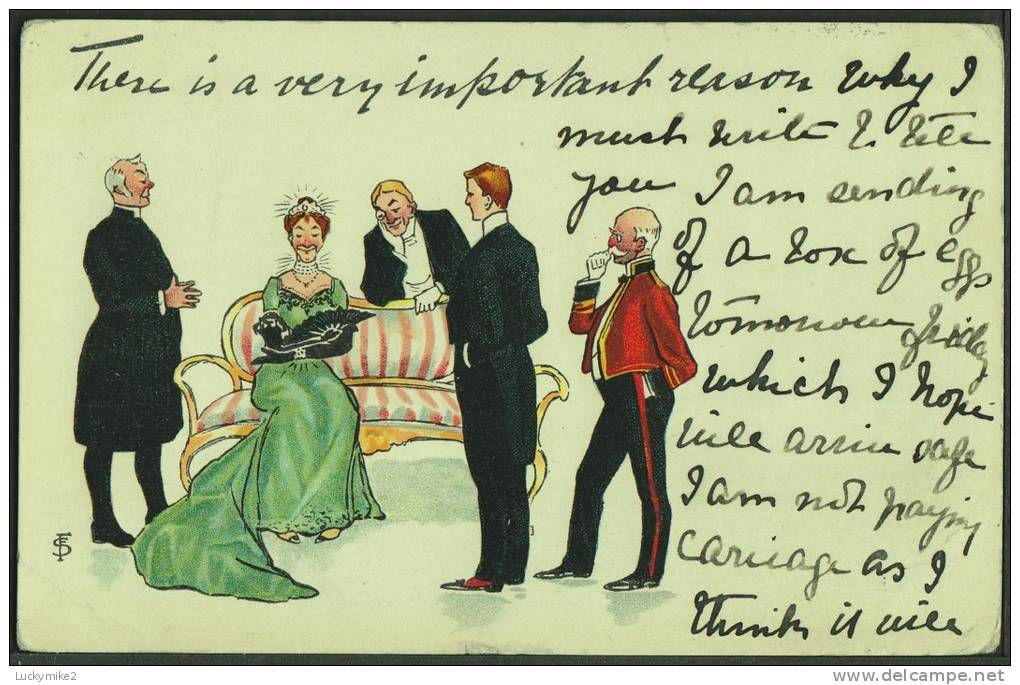 There is a very important reason why I
must write & tell
you I am sending
off a box of eggs
tomorrow friday
which I hope
will arrive safe
I am not paying
carriage as I
think it will
Luckymike2
delcampe.net